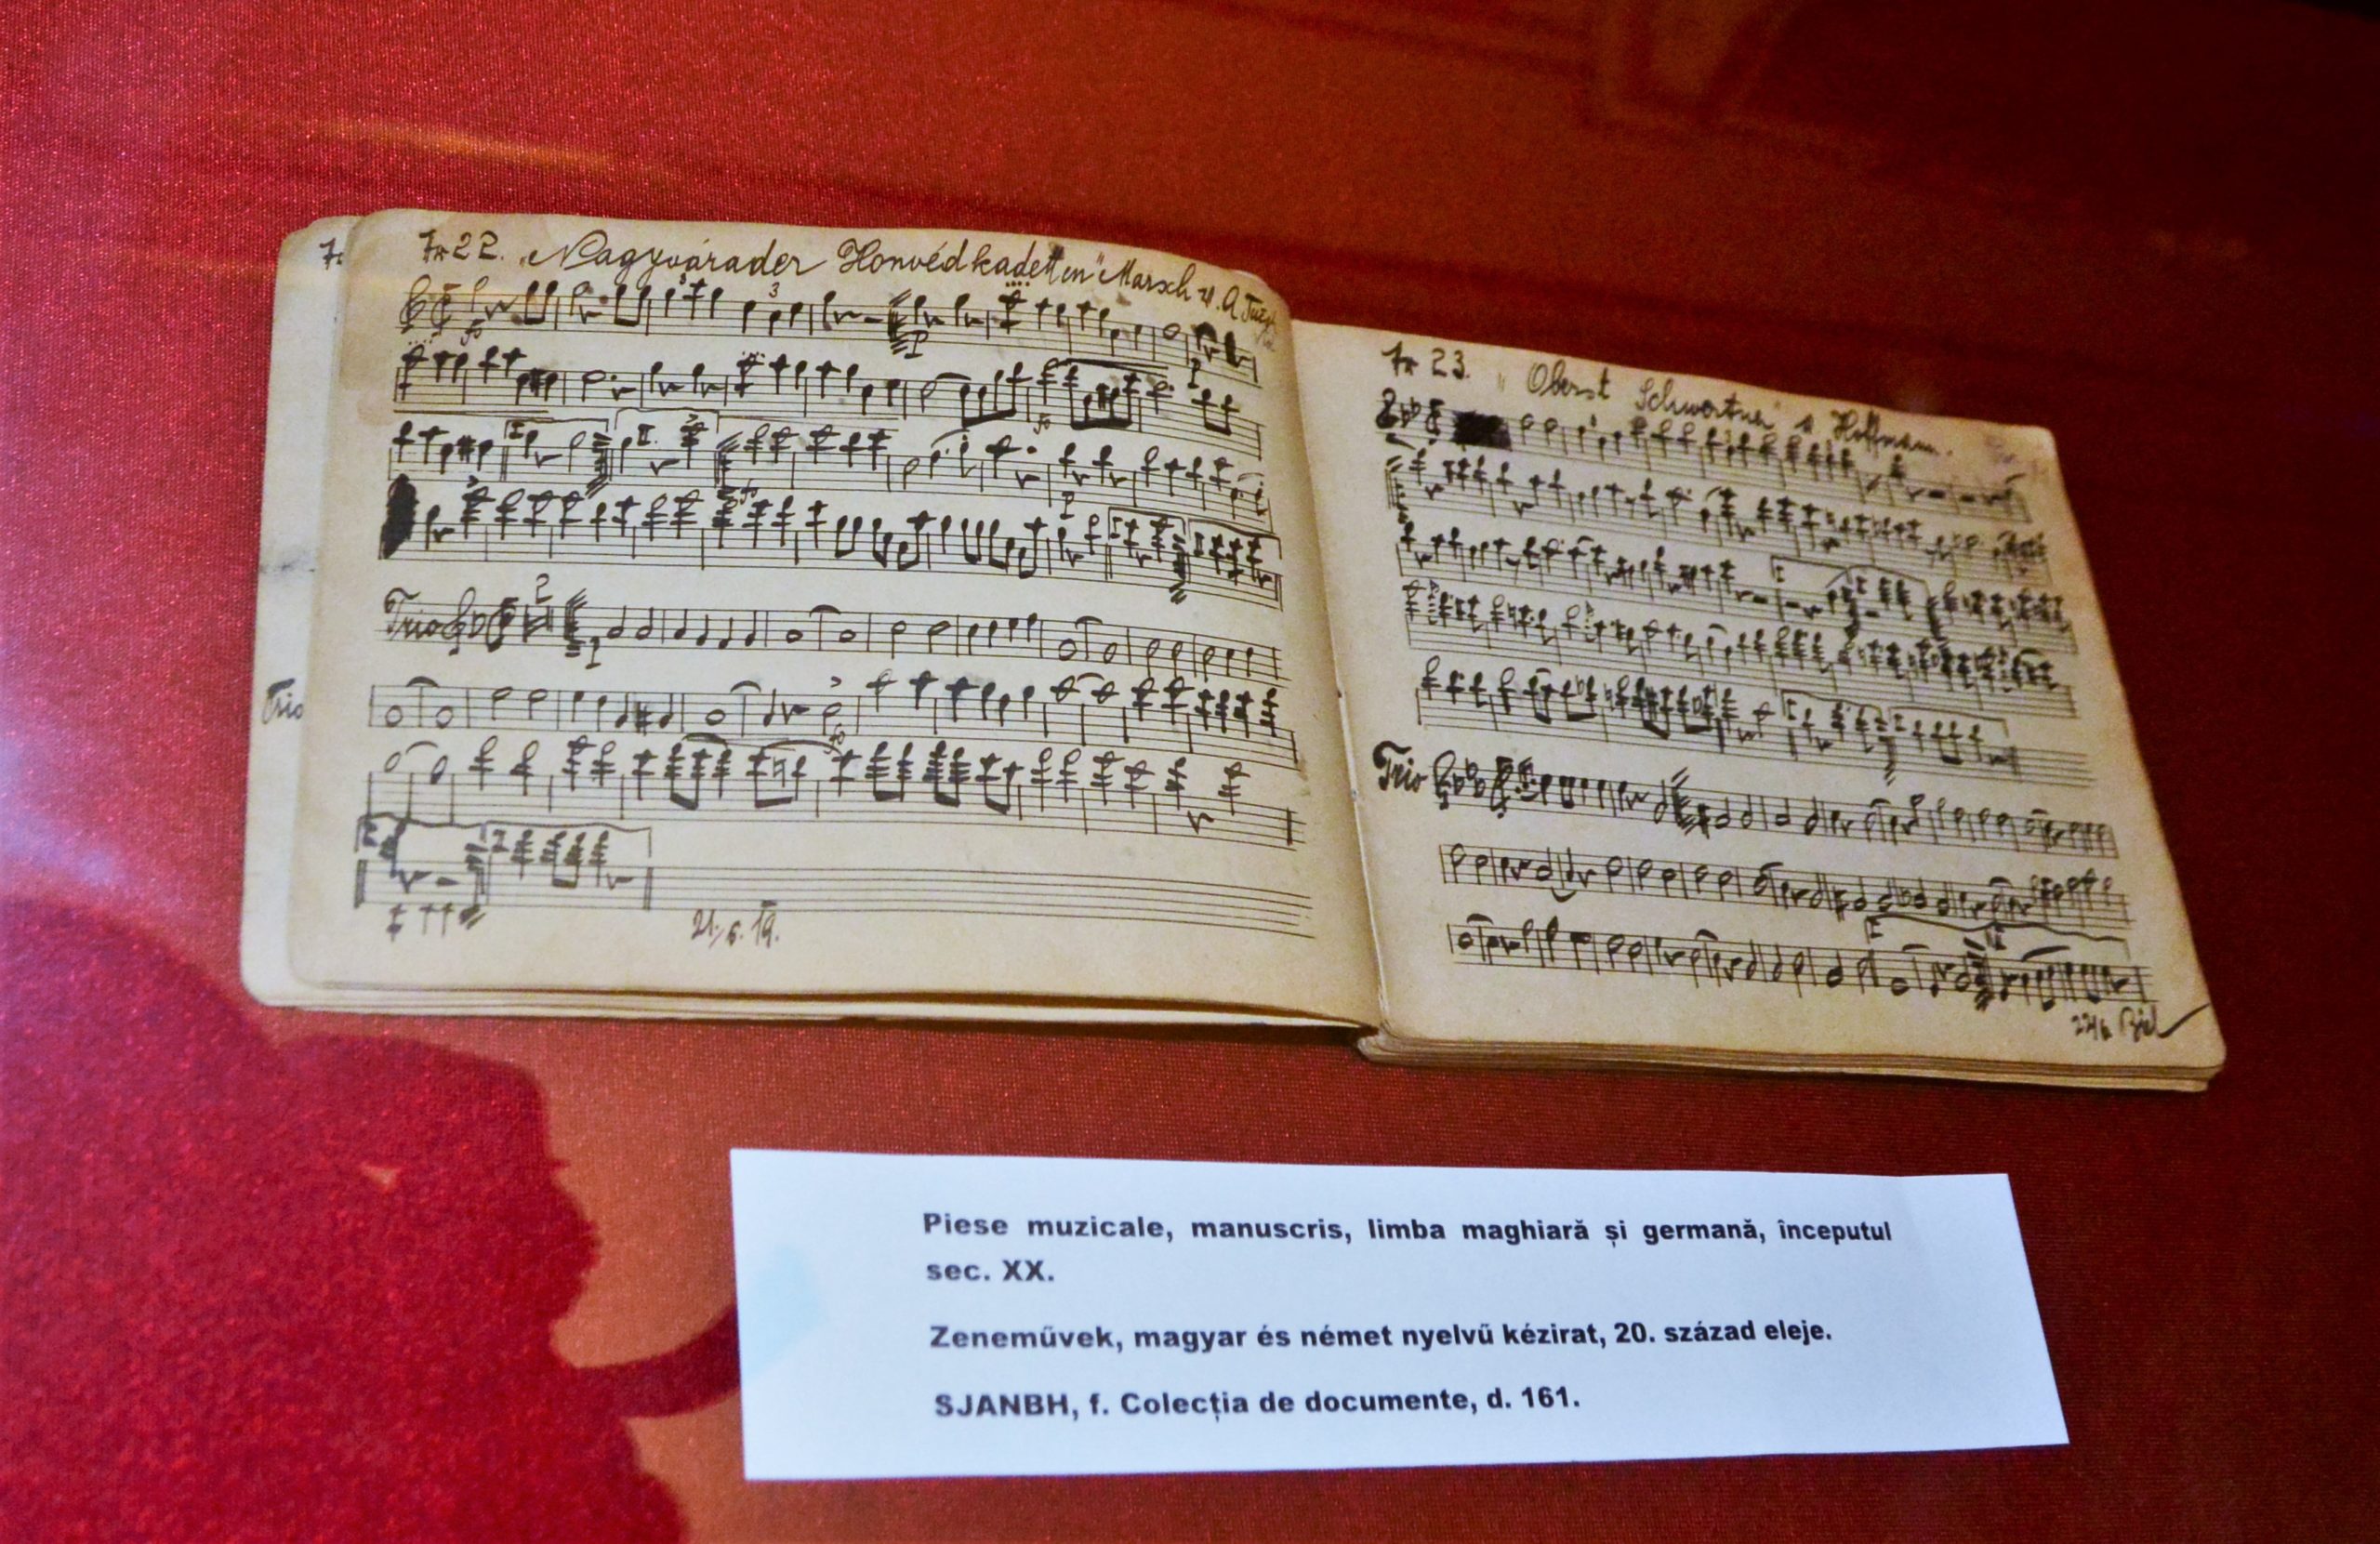 22. „Nagyvárader Honvédkadetten" Marsch v. A
Trio
21./6. 19.
Trio
23. "Oberst Schwertner" v Hoffmann.
Trio
22/6
Piese muzicale, manuscris, limba maghiară și germană, începutul
sec. XX.
Zeneművek, magyar és német nyelvű kézirat, 20. század eleje.
SJANBH, f. Colecția de documente, d. 161.